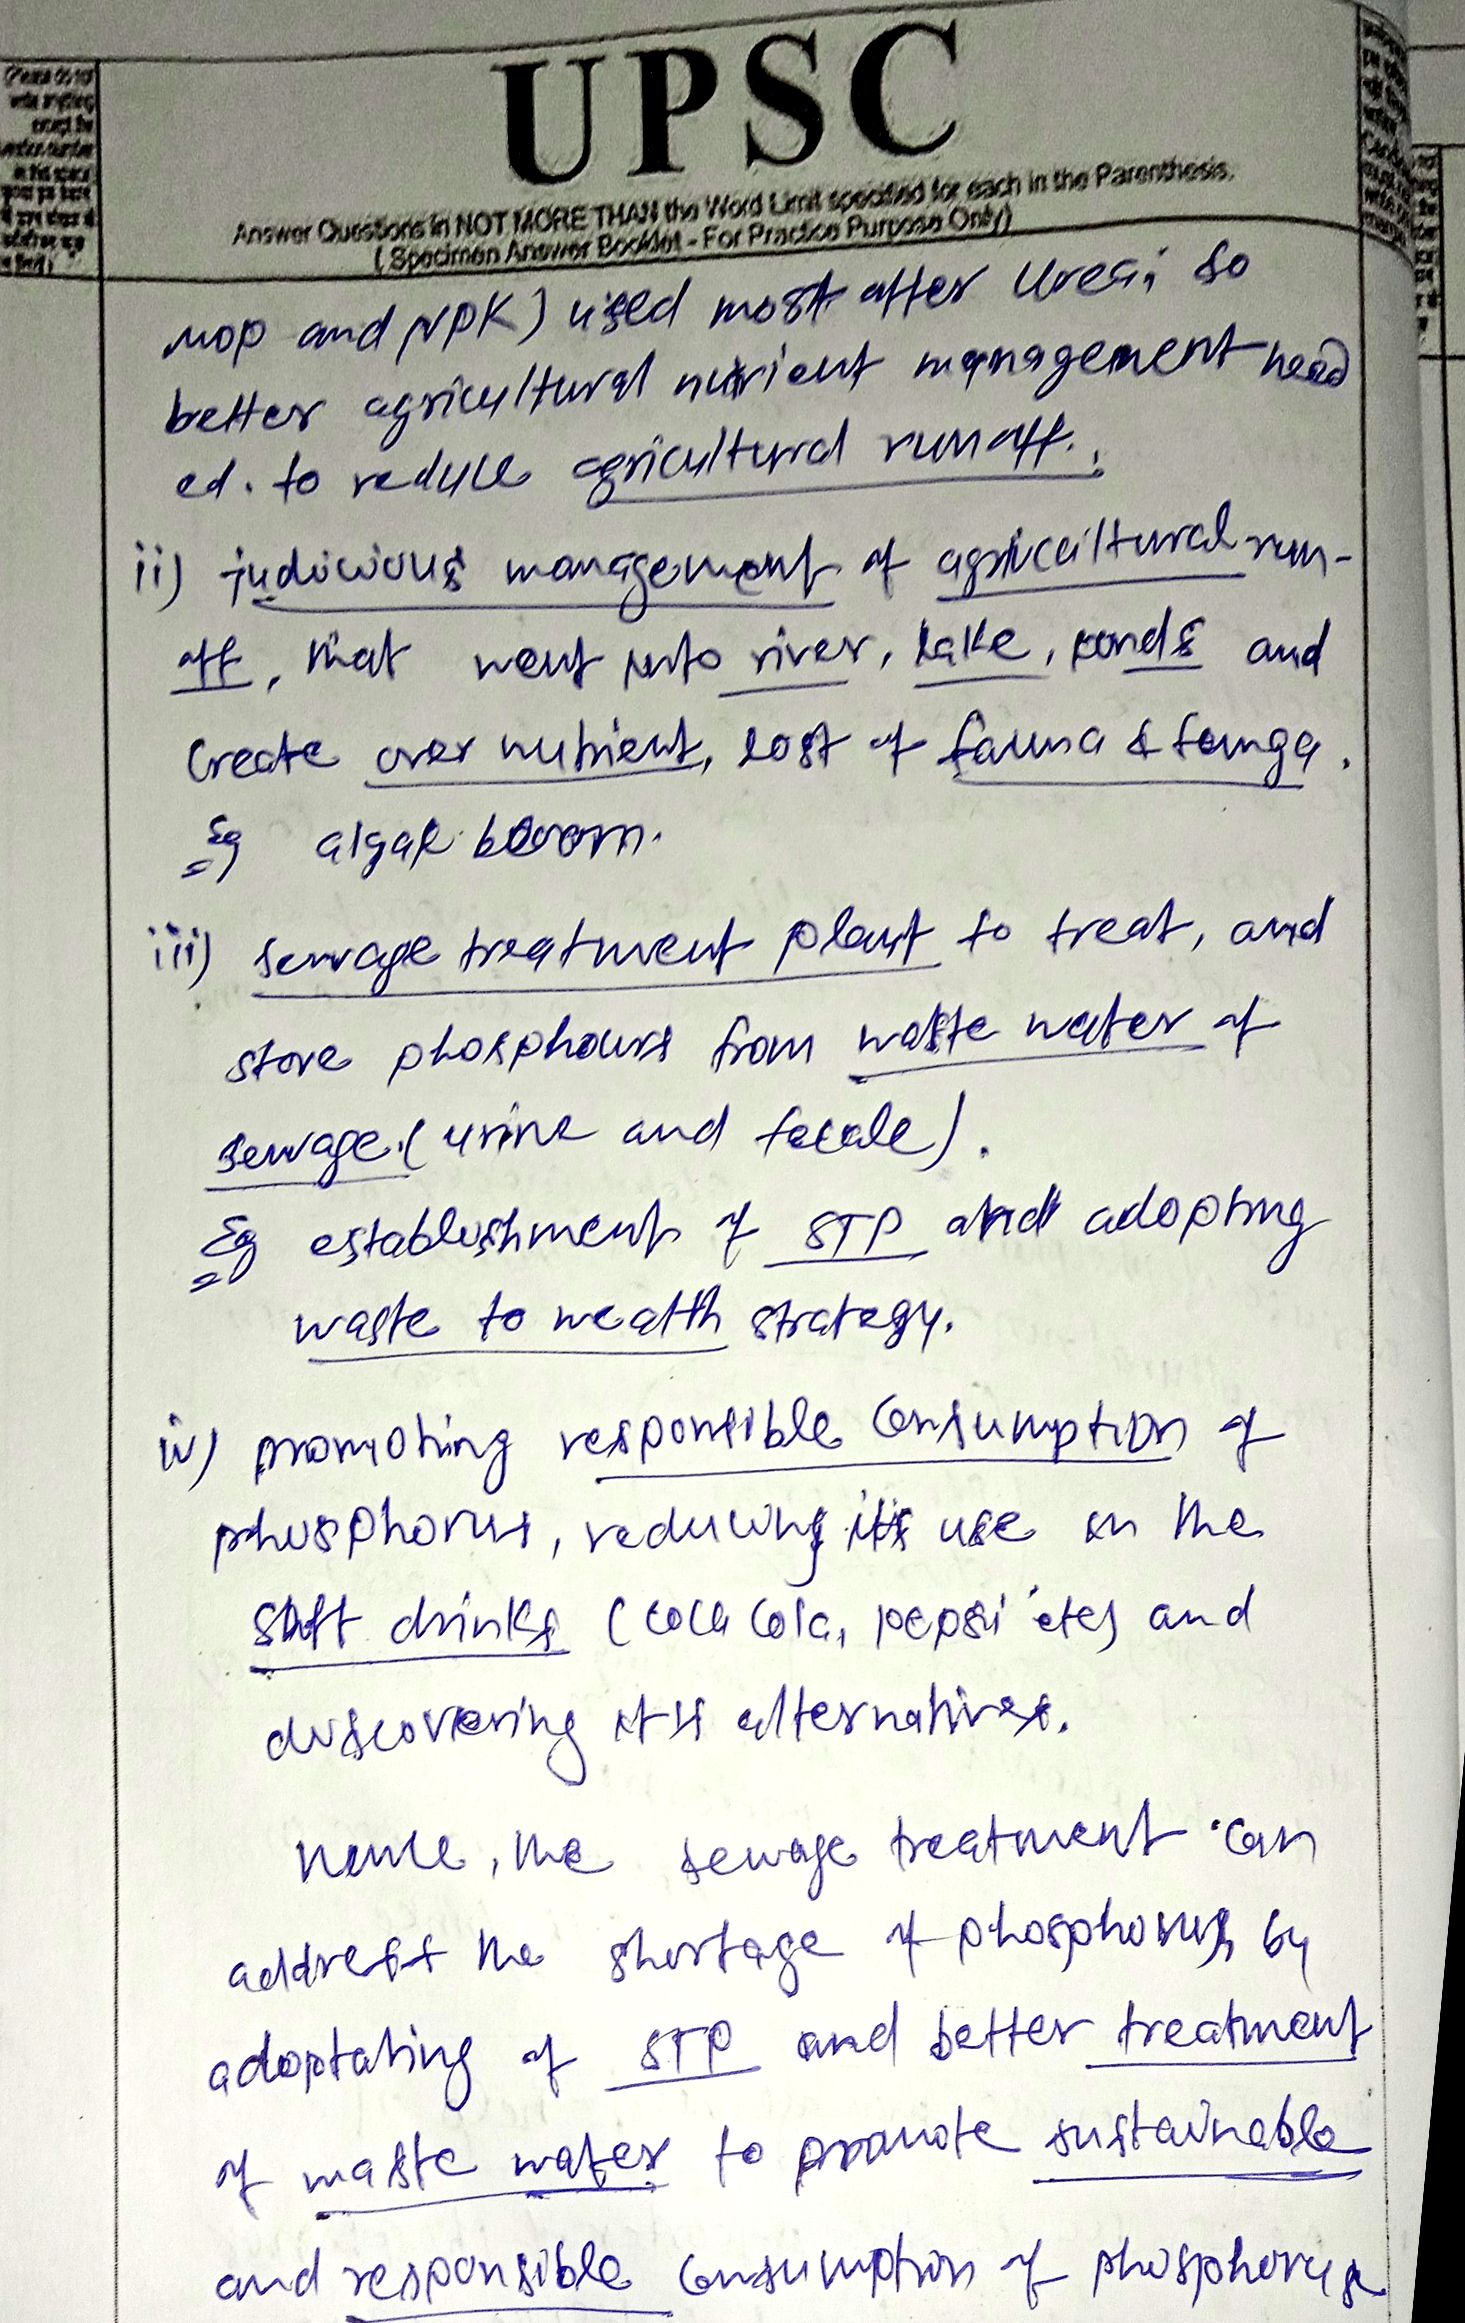 UPSC
Answer Questions in NOT MORE THAN the Word Limit specified for each in the Parenthesis.
( Specimen Answer Booklet - For Practice Purpose Only)
(Please do not
write anything
except the
question number
in this space
MOP and NPK) used most after Urea; so
better agricultural nutrient management need
ed. to reduce agricultural runoff.
ii) judicious management of agricultural run-
off, that went into river, lake, ponds and
create over nutrient, lost of fauna & funga.
Eg algal bloom.
iii) sewage treatment plant to treat, and
store phosphours from waste water of
sewage. (urine and fecale).
Eg establishment of STP and adopting
waste to wealth strategy.
iv) promoting responsible consumption of
phosphorus, reducing its use in the
soft drinks (coca cola, pepsi etc) and
discovering its alternatives.
Hence, the sewage treatment can
address the shortage of phosphorus, by
adoptating of STP and better treatment
of waste water to promote sustainable
and responsible consumption of phosphorus